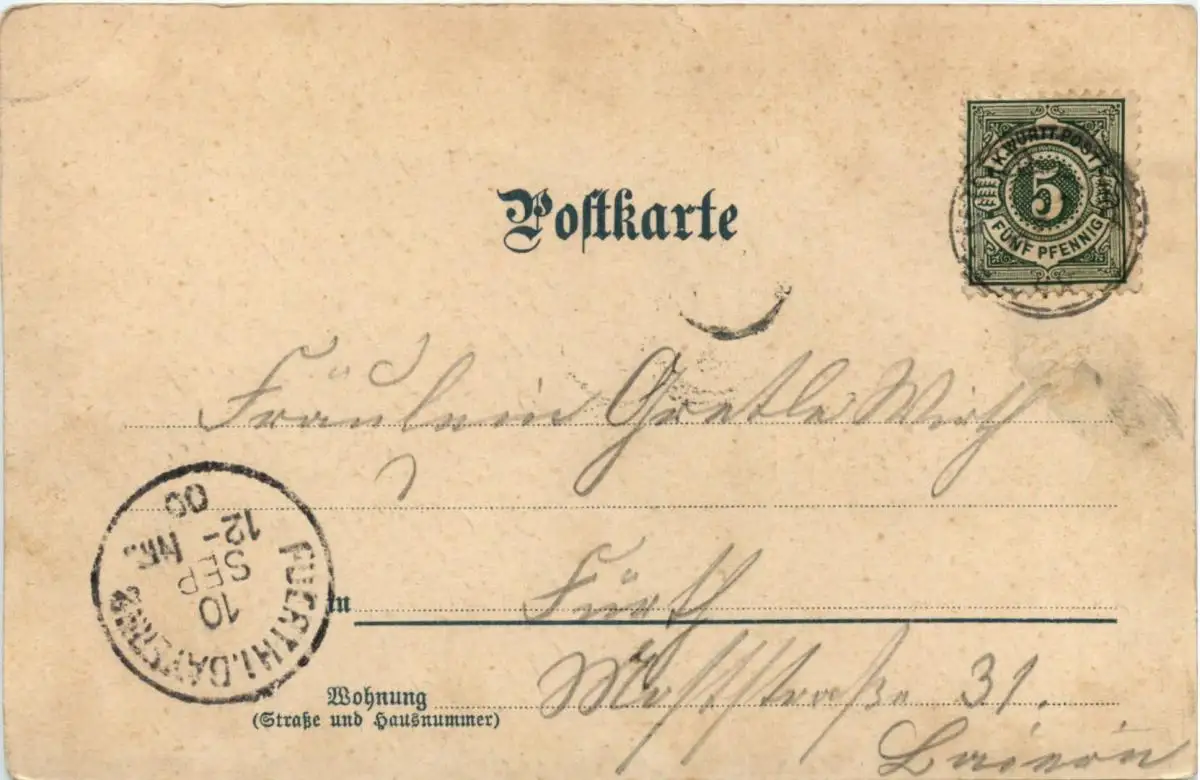 Postkarte
K. WÜRTT. POST
5
FÜNF PFENNIG
Fräulein Gretle Wirth
in Fürth
Wohnung
(Straße und Hausnummer)
Maxstraße 31.
FUERTH I. BAYERN 2
10
SEP
12-
NM.
00